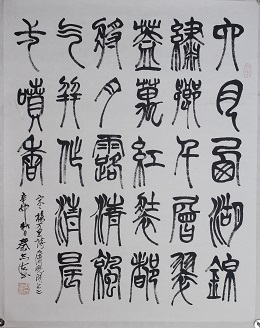 六月西湖錦
繡鄉千層翠
蓋萬紅裝都
將月露清涼
氣并作清晨
一噴香
宋楊万里詩
辛卯